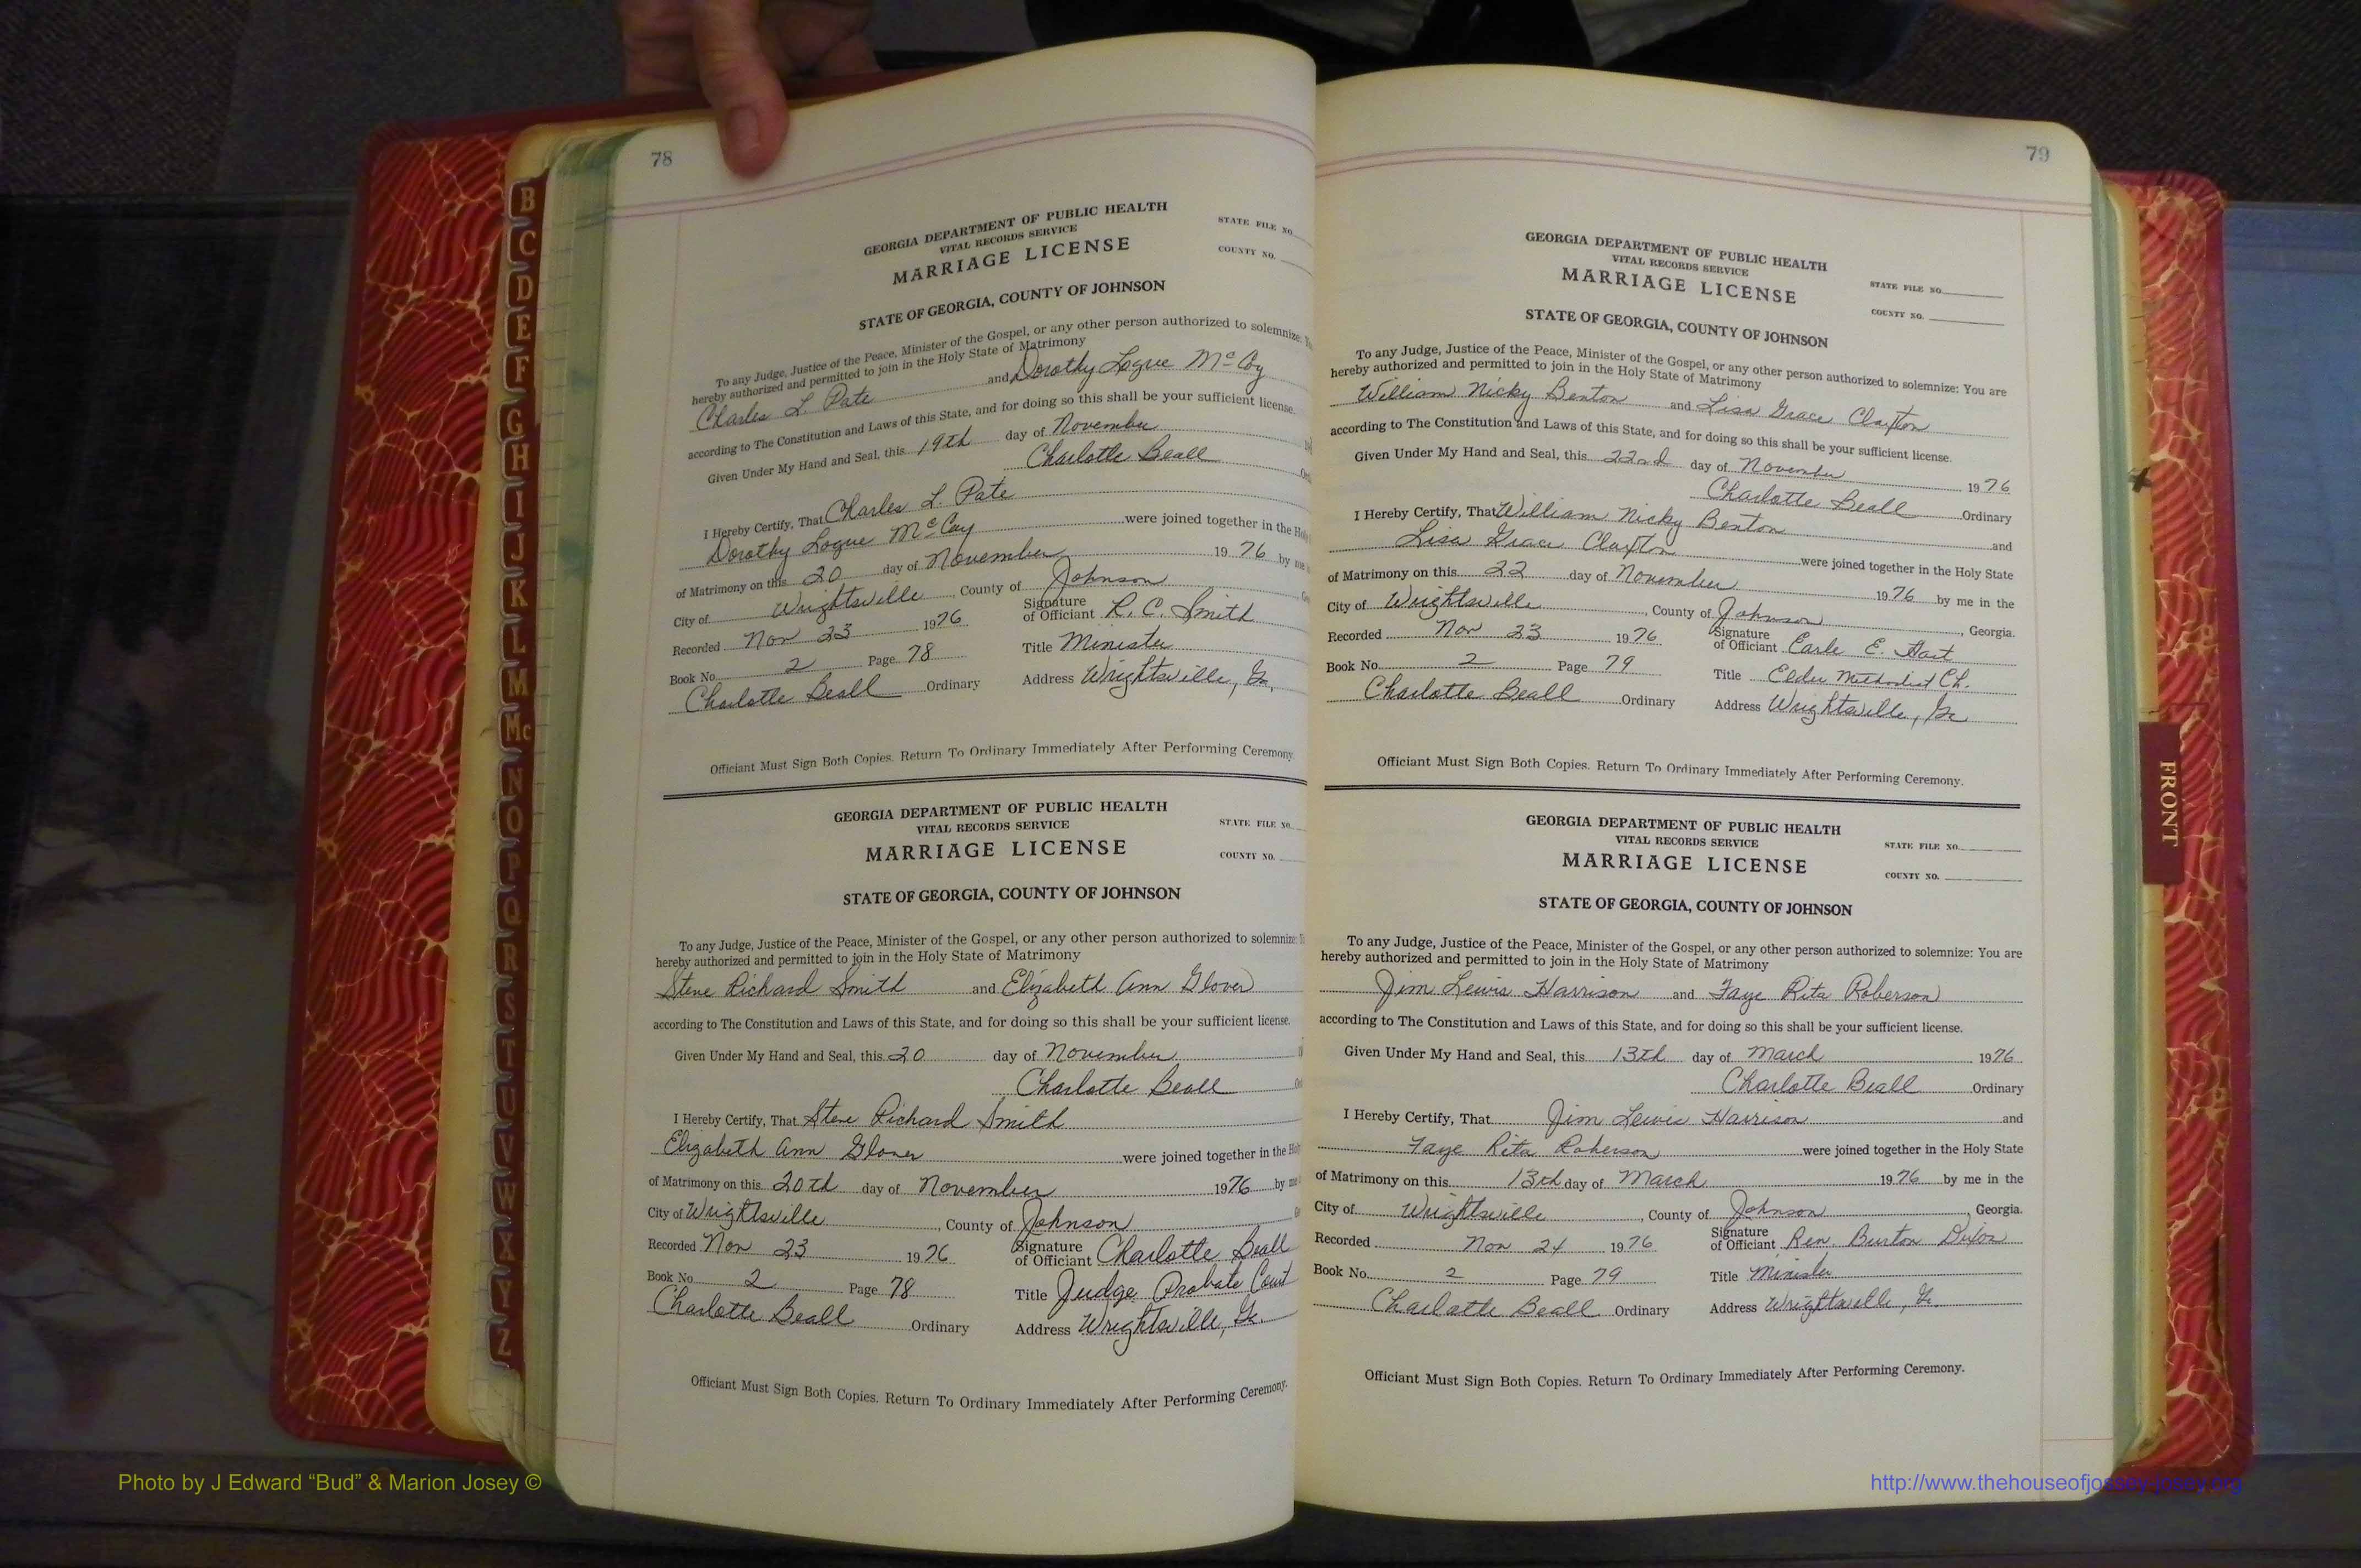 78
GEORGIA DEPARTMENT OF PUBLIC HEALTH
VITAL RECORDS SERVICE
MARRIAGE LICENSE
STATE FILE NO.
COUNTY NO.
STATE OF GEORGIA, COUNTY OF JOHNSON
To any Judge, Justice of the Peace, Minister of the Gospel, or any other person authorized to solemnize:
hereby authorized and permitted to join in the Holy State of Matrimony
Charles L. Pate and Dorothy Logue McCoy
according to The Constitution and Laws of this State, and for doing so this shall be your sufficient license.
Given Under My Hand and Seal, this 19th day of November
Charlotte Beall
I Hereby Certify, That Charles L. Pate
Dorothy Logue McCoy were joined together in the
of Matrimony on this 20 day of November 1976 by me
City of Wrightsville, County of Johnson
Recorded Nov 23 1976 Signature of Officiant R. C. Smith
Book No. 2 Page 78 Title Minister
Charlotte Beall Ordinary Address Wrightsville, Ga.
Officiant Must Sign Both Copies. Return To Ordinary Immediately After Performing Ceremony.
GEORGIA DEPARTMENT OF PUBLIC HEALTH
VITAL RECORDS SERVICE
MARRIAGE LICENSE
STATE FILE NO.
COUNTY NO.
STATE OF GEORGIA, COUNTY OF JOHNSON
To any Judge, Justice of the Peace, Minister of the Gospel, or any other person authorized to solemnize:
hereby authorized and permitted to join in the Holy State of Matrimony
Steve Richard Smith and Elizabeth Ann Glover
according to The Constitution and Laws of this State, and for doing so this shall be your sufficient license.
Given Under My Hand and Seal, this 20 day of November
Charlotte Beall
I Hereby Certify, That Steve Richard Smith
Elizabeth Ann Glover were joined together in the
of Matrimony on this 20th day of November 1976 by me
City of Wrightsville, County of Johnson
Recorded Nov 23 1976 Signature of Officiant Charlotte Beall
Book No. 2 Page 78 Title Judge Probate Court
Charlotte Beall Ordinary Address Wrightsville, Ga.
Officiant Must Sign Both Copies. Return To Ordinary Immediately After Performing Ceremony.
79
GEORGIA DEPARTMENT OF PUBLIC HEALTH
VITAL RECORDS SERVICE
MARRIAGE LICENSE
STATE FILE NO.
COUNTY NO.
STATE OF GEORGIA, COUNTY OF JOHNSON
To any Judge, Justice of the Peace, Minister of the Gospel, or any other person authorized to solemnize: You are
hereby authorized and permitted to join in the Holy State of Matrimony
William Nicky Benton and Lisa Grace Claxton
according to The Constitution and Laws of this State, and for doing so this shall be your sufficient license.
Given Under My Hand and Seal, this 22nd day of November 1976
Charlotte Beall Ordinary
I Hereby Certify, That William Nicky Benton and
Lisa Grace Claxton were joined together in the Holy State
of Matrimony on this 22 day of November 1976 by me in the
City of Wrightsville, County of Johnson, Georgia.
Recorded Nov 23 1976 Signature of Officiant Earle E. Hart
Book No. 2 Page 79 Title Elder Methodist Ch.
Charlotte Beall Ordinary Address Wrightsville, Ga
Officiant Must Sign Both Copies. Return To Ordinary Immediately After Performing Ceremony.
GEORGIA DEPARTMENT OF PUBLIC HEALTH
VITAL RECORDS SERVICE
MARRIAGE LICENSE
STATE FILE NO.
COUNTY NO.
STATE OF GEORGIA, COUNTY OF JOHNSON
To any Judge, Justice of the Peace, Minister of the Gospel, or any other person authorized to solemnize: You are
hereby authorized and permitted to join in the Holy State of Matrimony
Jim Lewis Harrison and Faye Rita Roberson
according to The Constitution and Laws of this State, and for doing so this shall be your sufficient license.
Given Under My Hand and Seal, this 13th day of March 1976
Charlotte Beall Ordinary
I Hereby Certify, That Jim Lewis Harrison and
Faye Rita Roberson were joined together in the Holy State
of Matrimony on this 13th day of March 1976 by me in the
City of Wrightsville, County of Johnson, Georgia.
Recorded Nov 24 1976 Signature of Officiant Rev. Burton Dixon
Book No. 2 Page 79 Title Minister
Charlotte Beall Ordinary Address Wrightsville, Ga.
Officiant Must Sign Both Copies. Return To Ordinary Immediately After Performing Ceremony.
B
C
D
E
F
G
H
I
J
K
L
M
Mc
N
O
P
Q
R
S
T
U
V
W
X
Y
Z
FRONT
Photo by J Edward “Bud” & Marion Josey ©
http://www.thehouseofjossey-josey.org